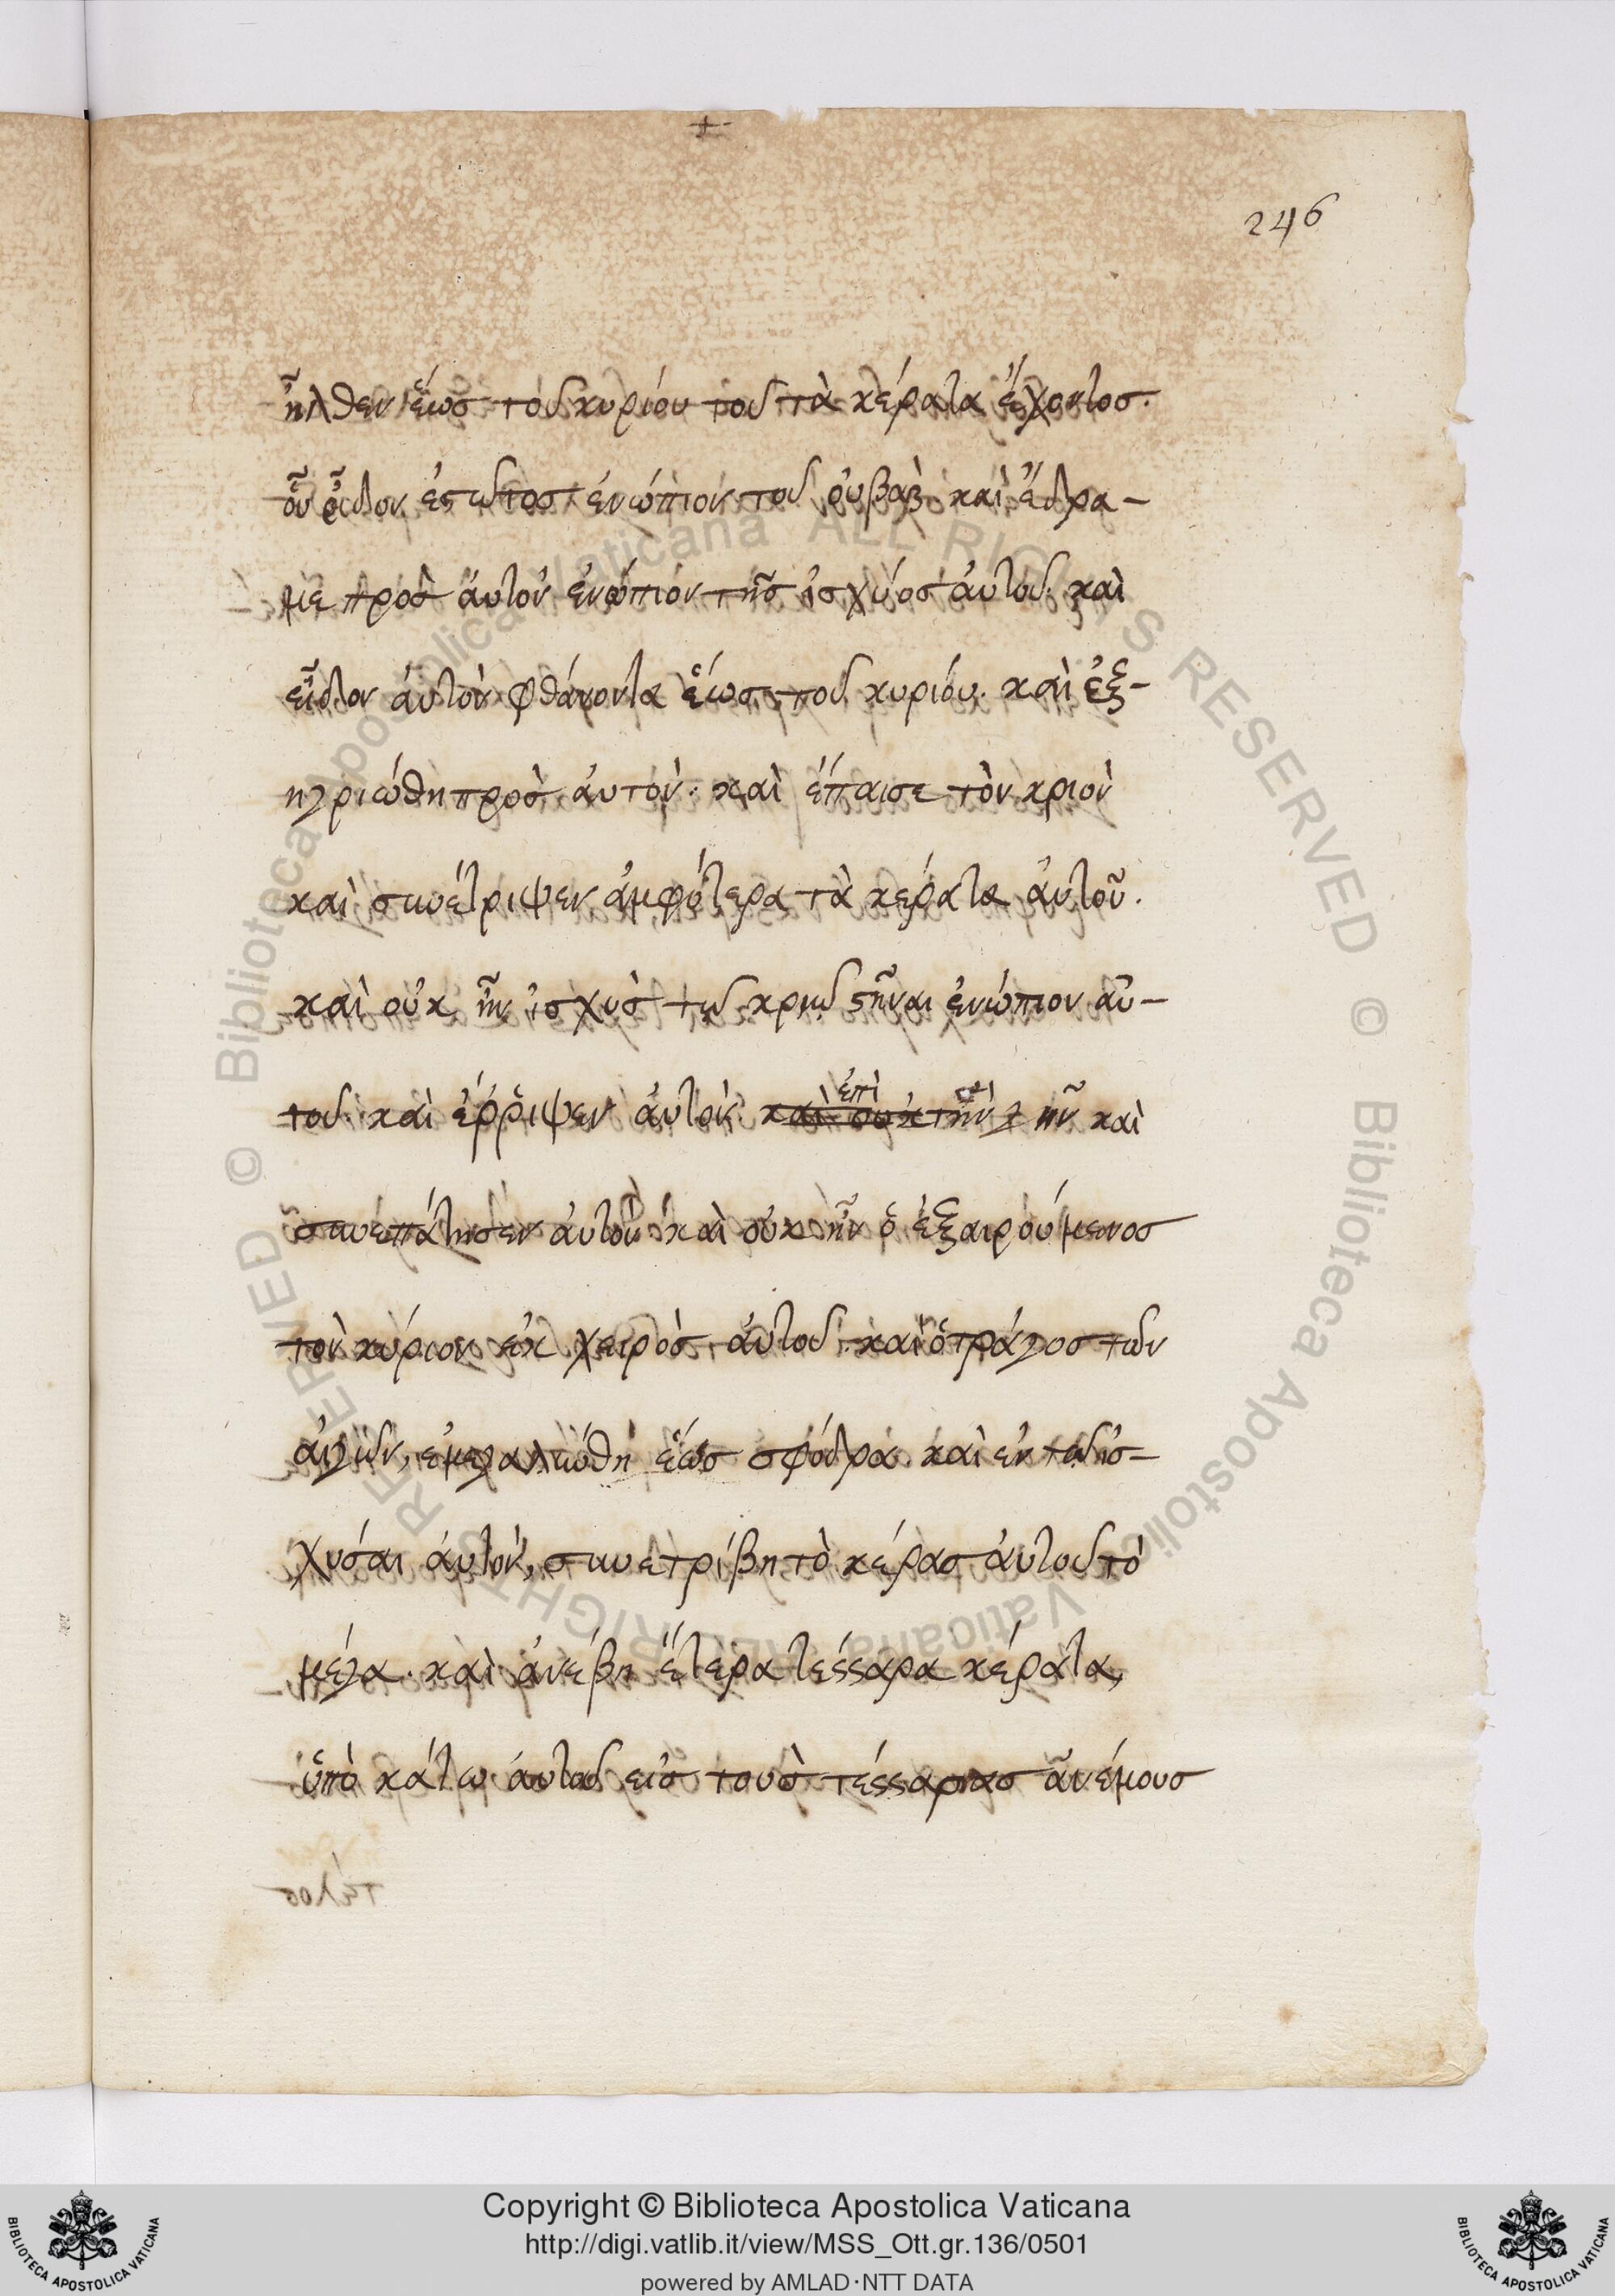 +
246
ἦλθεν ἕως τοῦ κυρίου τοῦ τὰ κέρατα ἔχοντος.
οὗ εἶδον ἑστῶτος ἐνώπιον τοῦ οὐβάβ. καὶ ἔδρα-
με πρὸς αὐτὸν ἐνώπιον τῆς ἰσχύος αὐτοῦ. καὶ
εἶδον αὐτὸν φθάνοντα ἕως τοῦ κυρίου. καὶ ἐξ-
ηγριώθη πρὸς αὐτόν. καὶ ἔπαισε τὸν κριὸν
καὶ συνέτριψεν ἀμφότερα τὰ κέρατα αὐτοῦ.
καὶ οὐκ ἦν ἰσχὺς τῷ κριῷ στῆναι ἐνώπιον αὐ-
τοῦ. καὶ ἔρριψεν αὐτὸν καὶ οὐκ ἐπὶ τὴν γῆν καὶ
συνεπάτησεν αὐτὸν καὶ οὐκ ἦν ὁ ἐξαιρούμενος
τὸν κύριον ἐκ χειρὸς αὐτοῦ. καὶ ὁ τράγος τῶν
αἰγῶν, ἐμεγαλύνθη ἕως σφόδρα. καὶ ἐν τῷ ἰσ-
χύσαι αὐτὸν, συνετρίβη τὸ κέρας αὐτοῦ τὸ
μέγα. καὶ ἀνέβη ἕτερα τέσσαρα κέρατα,
ὑπὸ κάτω αὐτοῦ εἰς τοὺς τέσσαρας ἀνέμους
© Biblioteca Apostolica Vaticana ALL RIGHTS RESERVED © Biblioteca Apostolica Vaticana ALL RIGHTS RESERVED
Copyright © Biblioteca Apostolica Vaticana
http://digi.vatlib.it/view/MSS_Ott.gr.136/0501
powered by AMLAD·NTT DATA
BIBLIOTECA APOSTOLICA VATICANA
BIBLIOTECA APOSTOLICA VATICANA